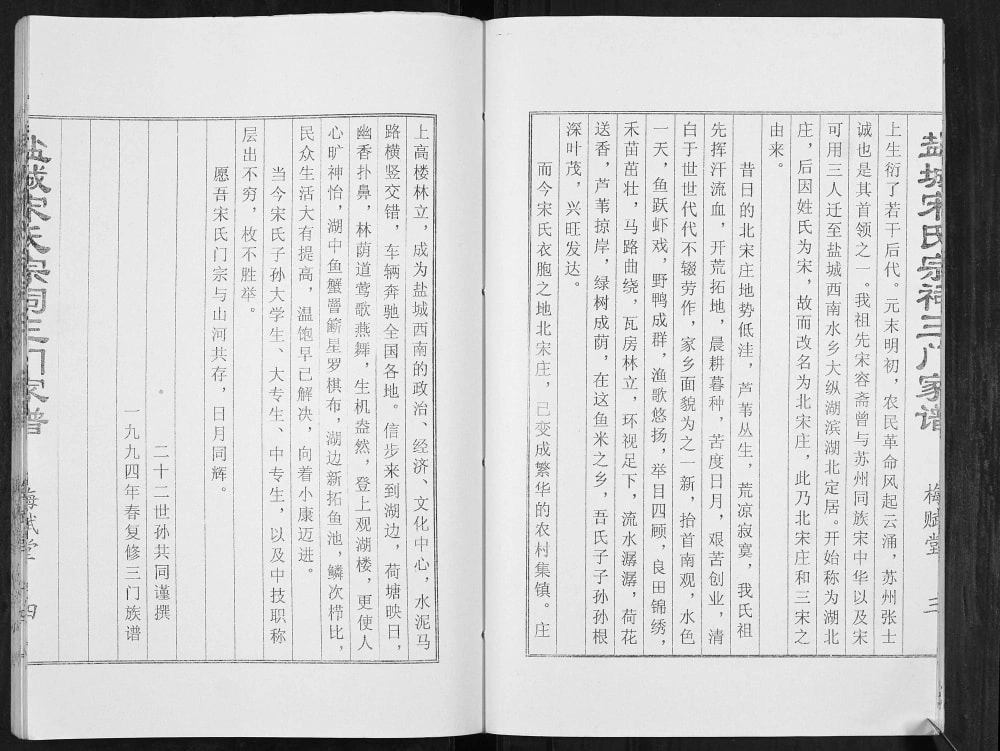 盐城宋氏宗祠三门家谱 梅赋堂 三
上生衍了若干后代。元末明初，农民革命风起云涌，苏州张士
诚也是其首领之一。我祖先宋容斋曾与苏州同族宋中华以及宋
可用三人迁至盐城西南水乡大纵湖滨湖北定居。开始称为湖北
庄，后因姓氏为宋，故而改名为北宋庄，此乃北宋庄和三宋之
由来。
昔日的北宋庄地势低洼，芦苇丛生，荒凉寂寞，我氏祖
先挥汗流血，开荒拓地，晨耕暮种，苦度日月，艰苦创业，清
白于世世代代不辍劳作，家乡面貌为之一新，抬首南观，水色
一天，鱼跃虾戏，野鸭成群，渔歌悠扬，举目四顾，良田锦绣，
禾苗茁壮，马路曲绕，瓦房林立，环视足下，流水潺潺，荷花
送香，芦苇掠岸，绿树成荫，在这鱼米之乡，吾氏子子孙孙根
深叶茂，兴旺发达。
而今宋氏衣胞之地北宋庄，已变成繁华的农村集镇。庄
上高楼林立，成为盐城西南的政治、经济、文化中心，水泥马
路横竖交错，车辆奔驰全国各地。信步来到湖边，荷塘映日，
幽香扑鼻，林荫道莺歌燕舞，生机盎然，登上观湖楼，更使人
心旷神怡，湖中鱼蟹罾簖星罗棋布，湖边新拓鱼池，鳞次栉比，
民众生活大有提高，温饱早已解决，向着小康迈进。
当今宋氏子孙大学生、大专生、中专生，以及中技职称
层出不穷，枚不胜举。
愿吾宋氏门宗与山河共存，日月同辉。
二十二世孙共同谨撰
一九九四年春复修三门族谱
盐城宋氏宗祠三门家谱 梅赋堂 四